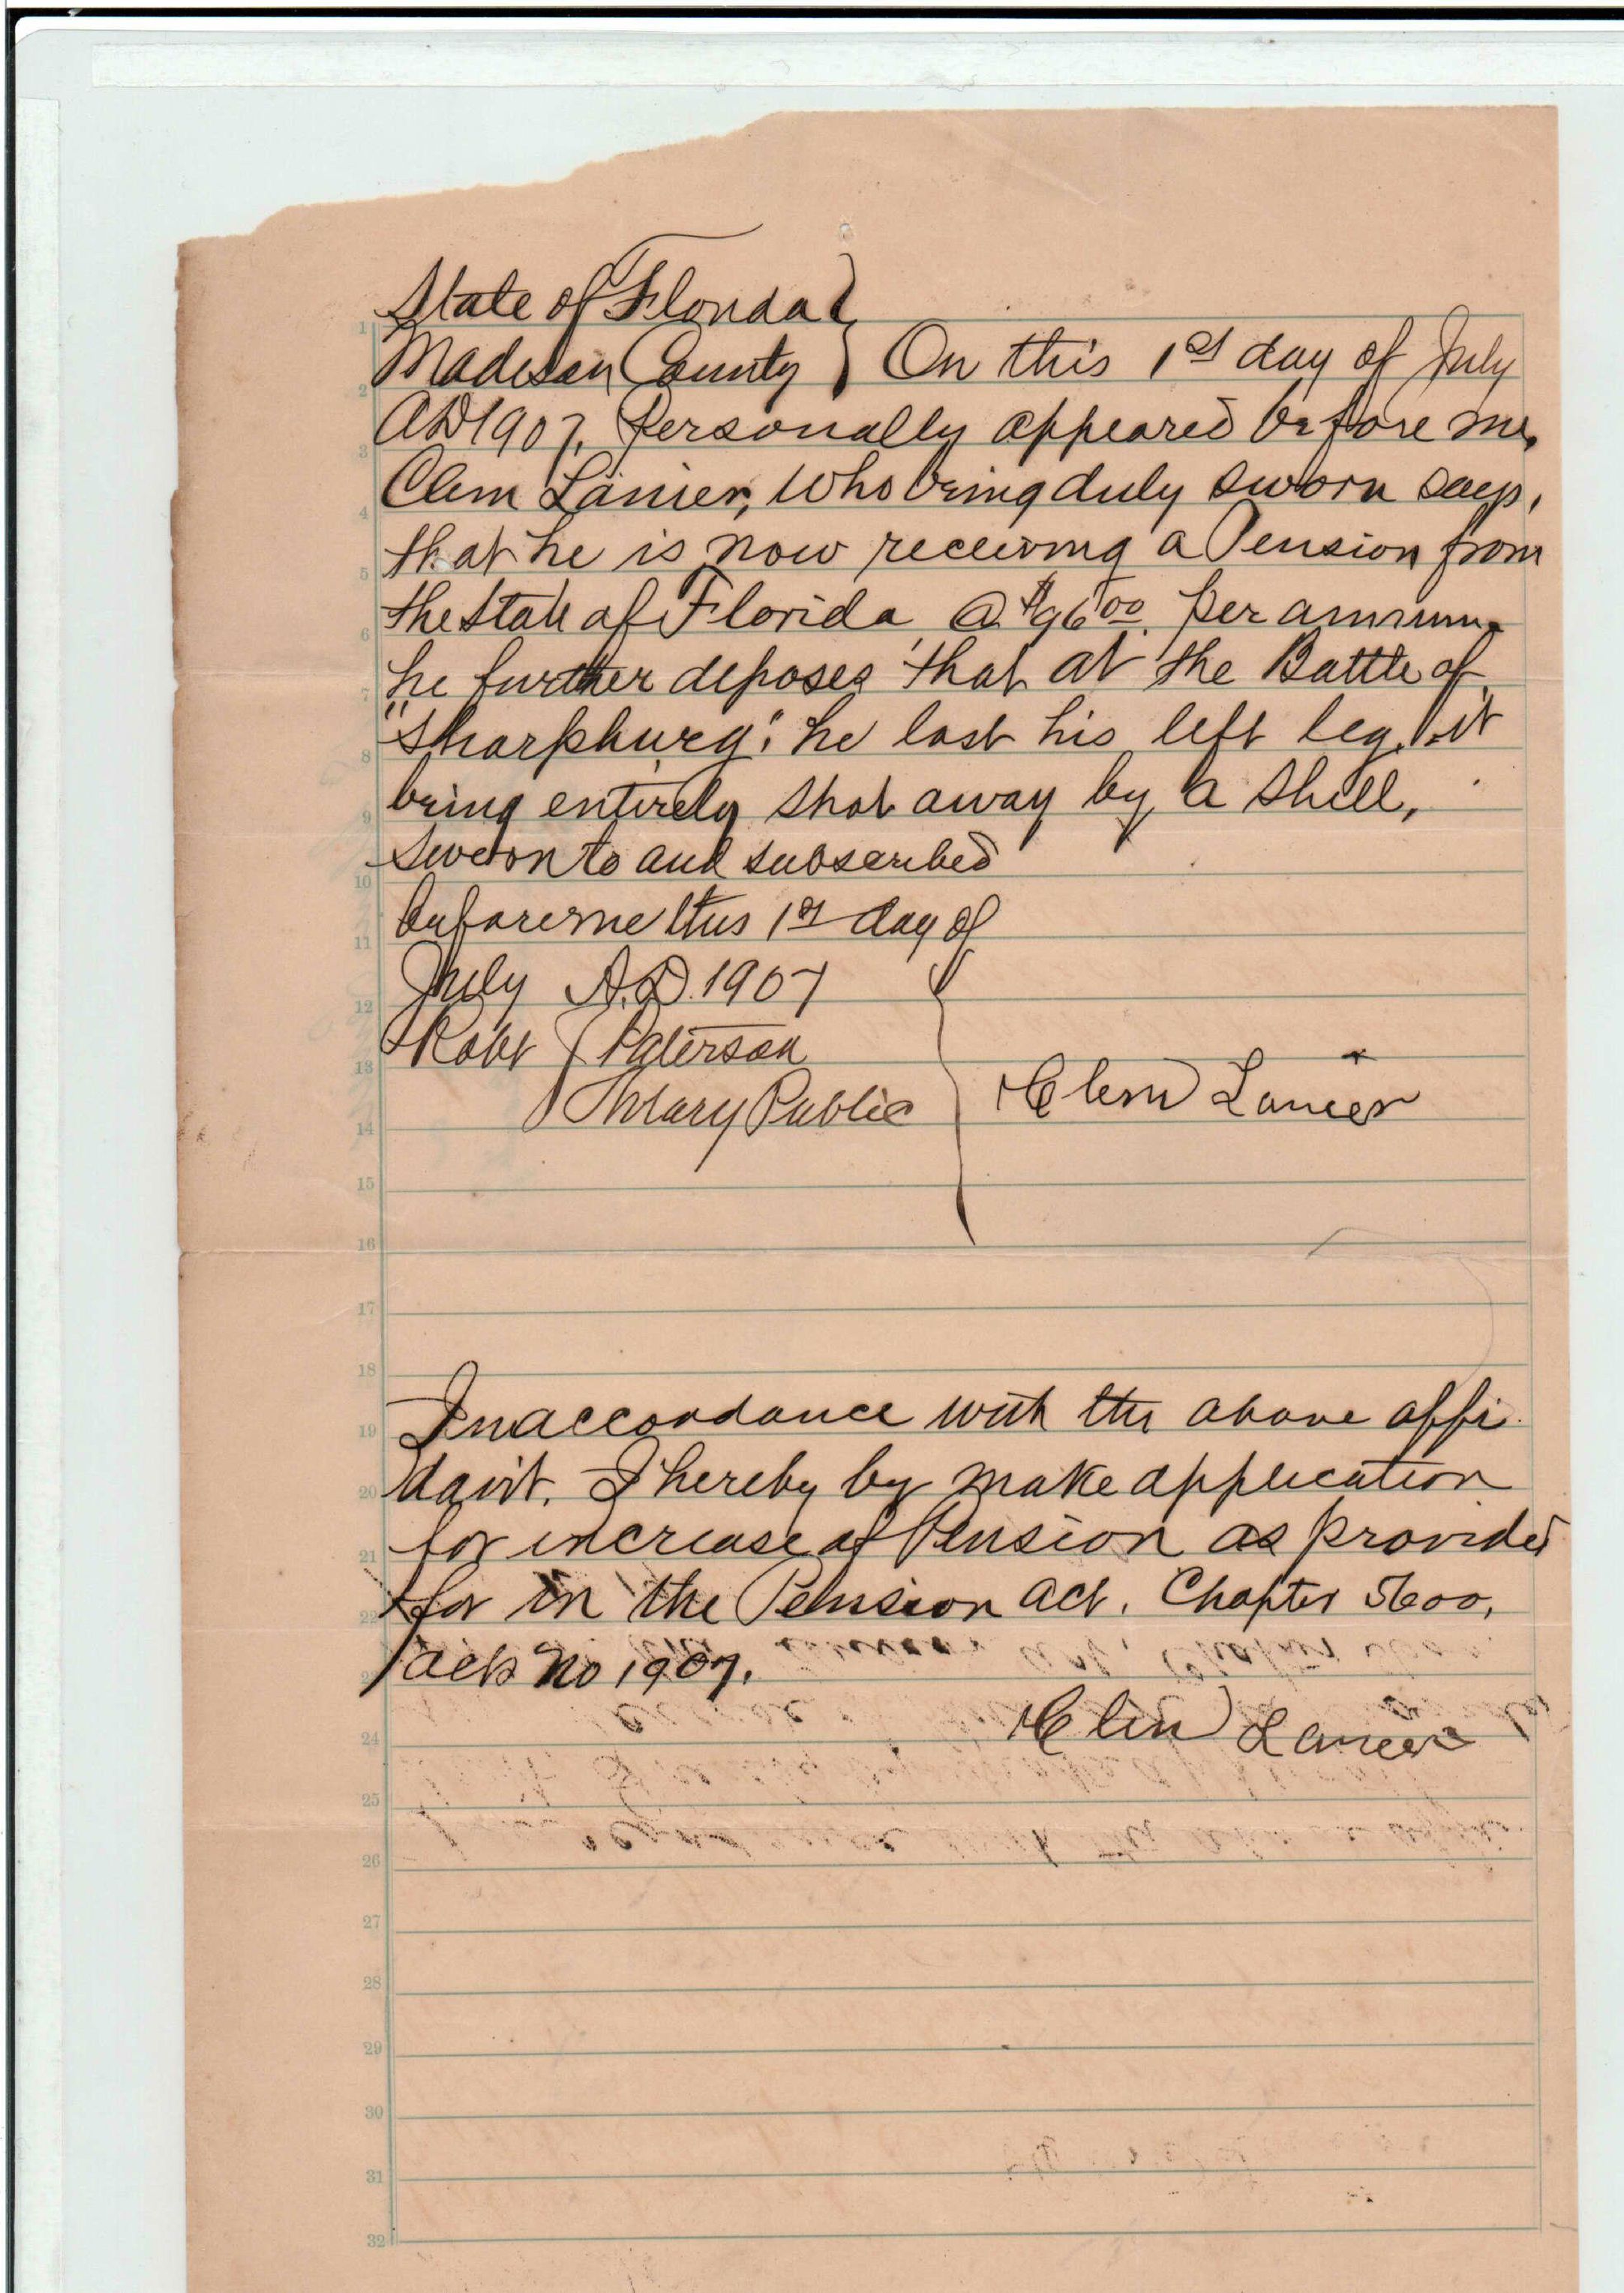 State of Florida
Madison County } On this 1st day of July
AD 1907, Personally appeared before me,
Clem Lanier, Who being duly sworn says,
that he is now receiving a Pension from
the State of Florida @ $96.00 per annum.
he further deposes that at the Battle of
"Sharpburg," he lost his left leg, it
being entirely shot away by a shell,
Sworn to and subscribed
before me this 1st day of
July A.D. 1907
Robt Paterson
Notary Public
Clem Lanier
In accordance with the above affi
davit. I hereby by make application
for increase of Pension as provided
for in the Pension act. Chapter 5600,
acts no 1907.
Clem Lanier
1
2
3
4
5
6
7
8
9
10
11
12
13
14
15
16
17
18
19
20
21
22
23
24
25
26
27
28
29
30
31
32